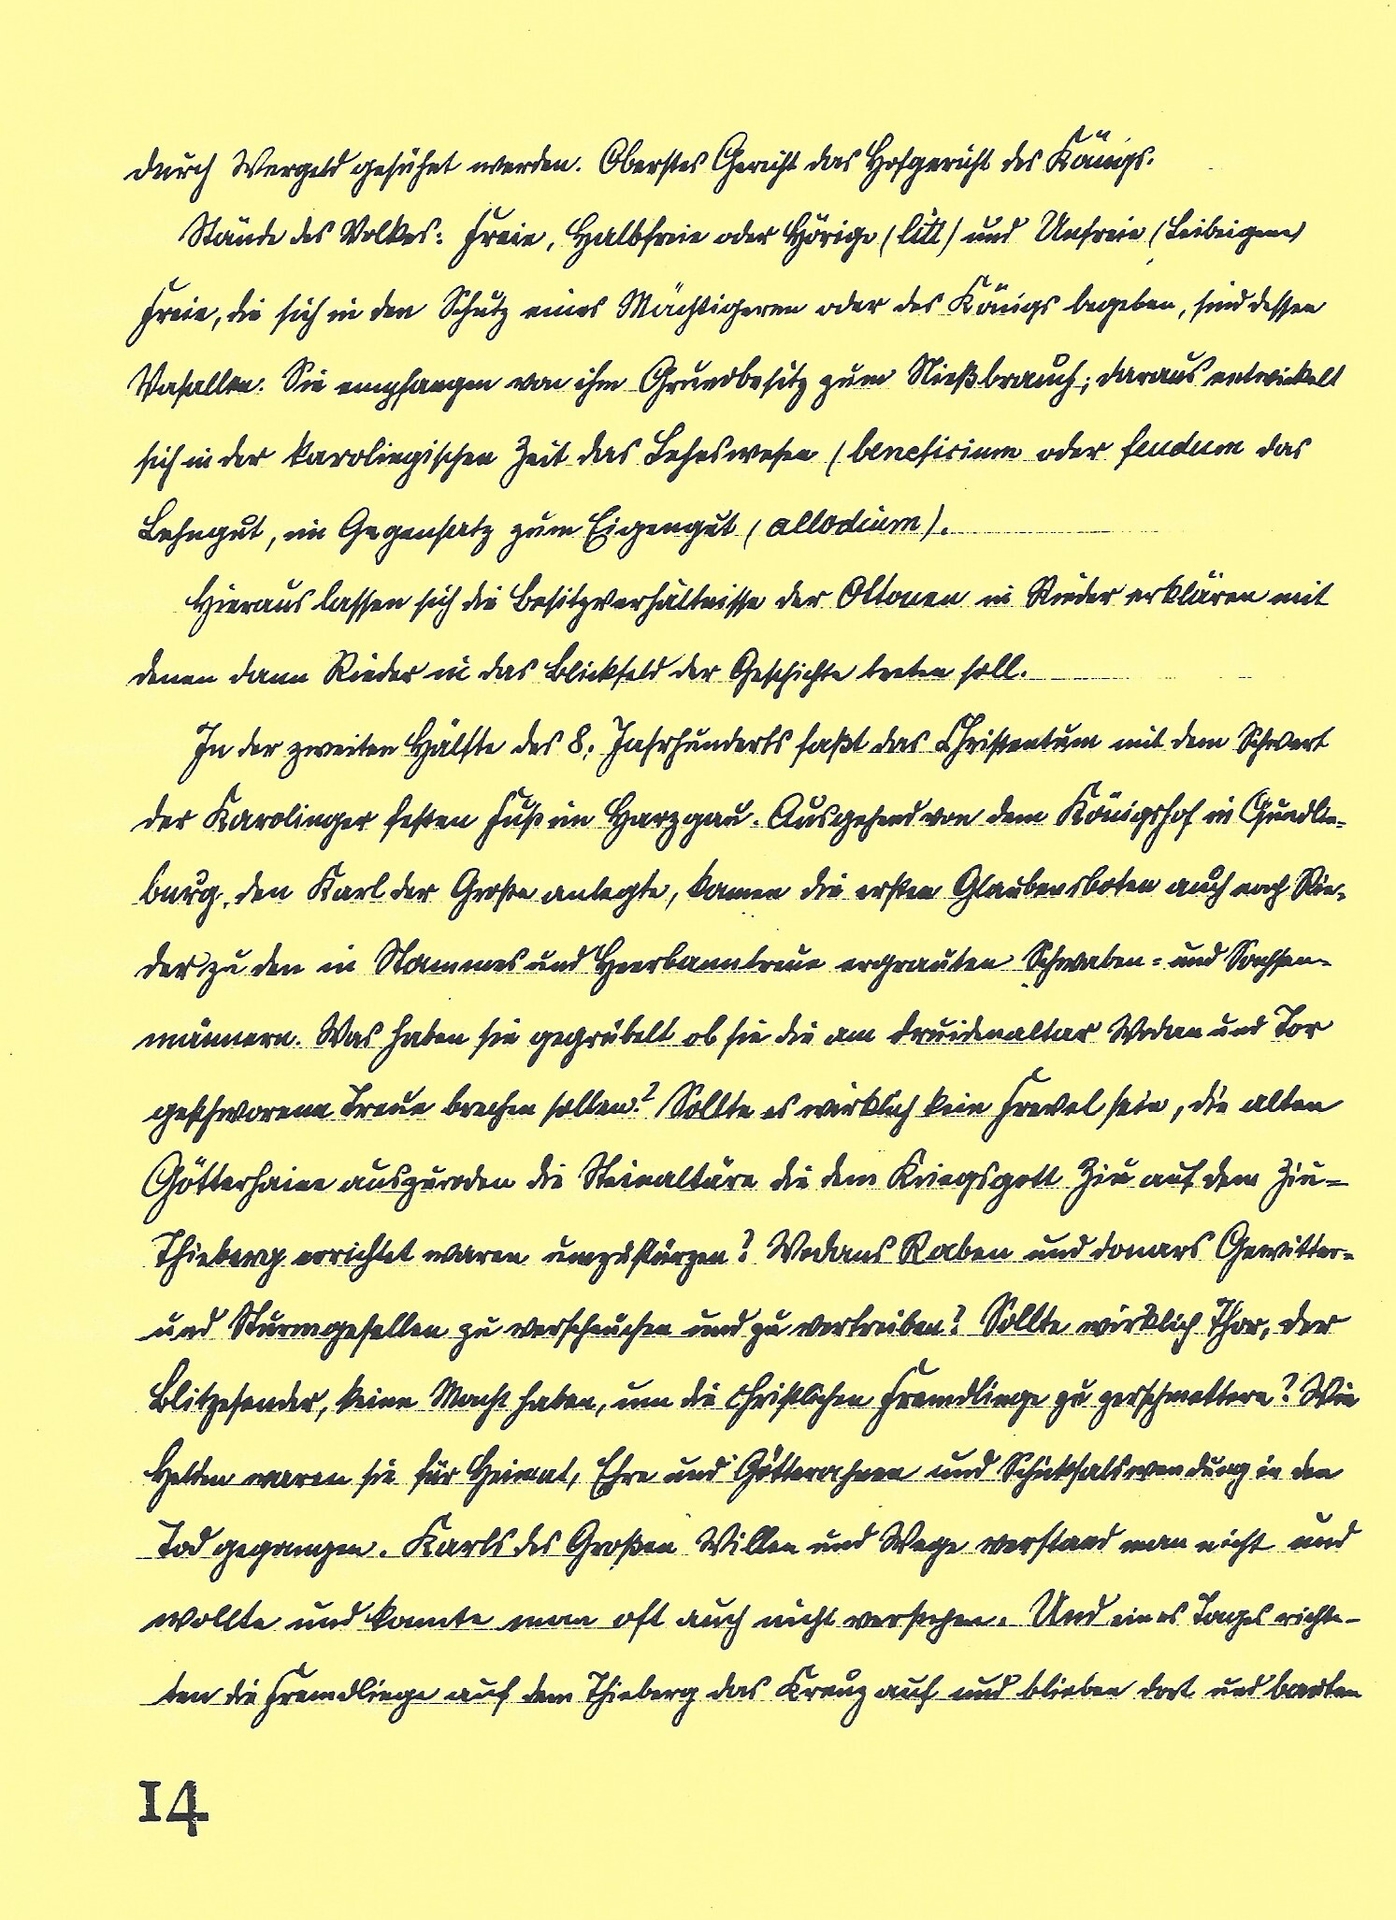 durch Wergeld gesühnt werden. Oberstes Gericht das Hofgericht des Königs.
Stände des Volkes: Freie, Halbfreie oder Hörige (litt) und Unfreie (Leibeigene)
Freie, die sich in den Schutz eines Mächtigeren oder des Königs begeben, sind dessen
Vasallen. Sie empfangen von ihm Grundbesitz zum Nießbrauch; daraus entwickelt
sich in der karolingischen Zeit das Lehnswesen (beneficium oder feudum das
Lehngut, im Gegensatz zum Eigengut (allodium).
Hieraus lassen sich die Besitzverhältnisse der Ottonen in Rieder erklären mit
denen dann Rieder in das Blickfeld der Geschichte treten soll.
In der zweiten Hälfte des 8. Jahrhunderts faßt das Christentum mit dem Schwert
der Karolinger festen Fuß im Harzgau. Ausgehend von dem Königshof in Quedlin-
burg, den Karl der Große anlegte, kamen die ersten Glaubensboten auch nach Rie-
der zu den in Stammes und Heerbanntreue ergrauten Schwaben- und Sachsen-
männern. Was haben sie gegrübelt ob sie die am Druidenaltar Wodan und Tor
geschworene Treue brechen sollen? Sollte es wirklich kein Frevel sein, die alten
Götterhaine auszuroden die Steinaltäre die dem Kriegsgott Ziu auf dem Ziu-
Thieberg errichtet waren umzustürzen? Wodans Raben und Donars Gewitter-
und Sturmgesellen zu verscheuchen und zu vertreiben? Sollte wirklich Thor, der
Blitzesender, keine Macht haben, um die christlichen Fremdlinge zu zerschmettern? Wie
Helden waren sie für Heimat, Ehre und Götterahnen und Schicksalswendung in den
Tod gegangen. Karls des Großen Willen und Wege verstand man nicht und
wollte und konnte man oft auch nicht verstehen. Und eines Tages richte-
ten die Fremdlinge auf dem Thieberg das Kreuz auf und blieben dort und bauten
14